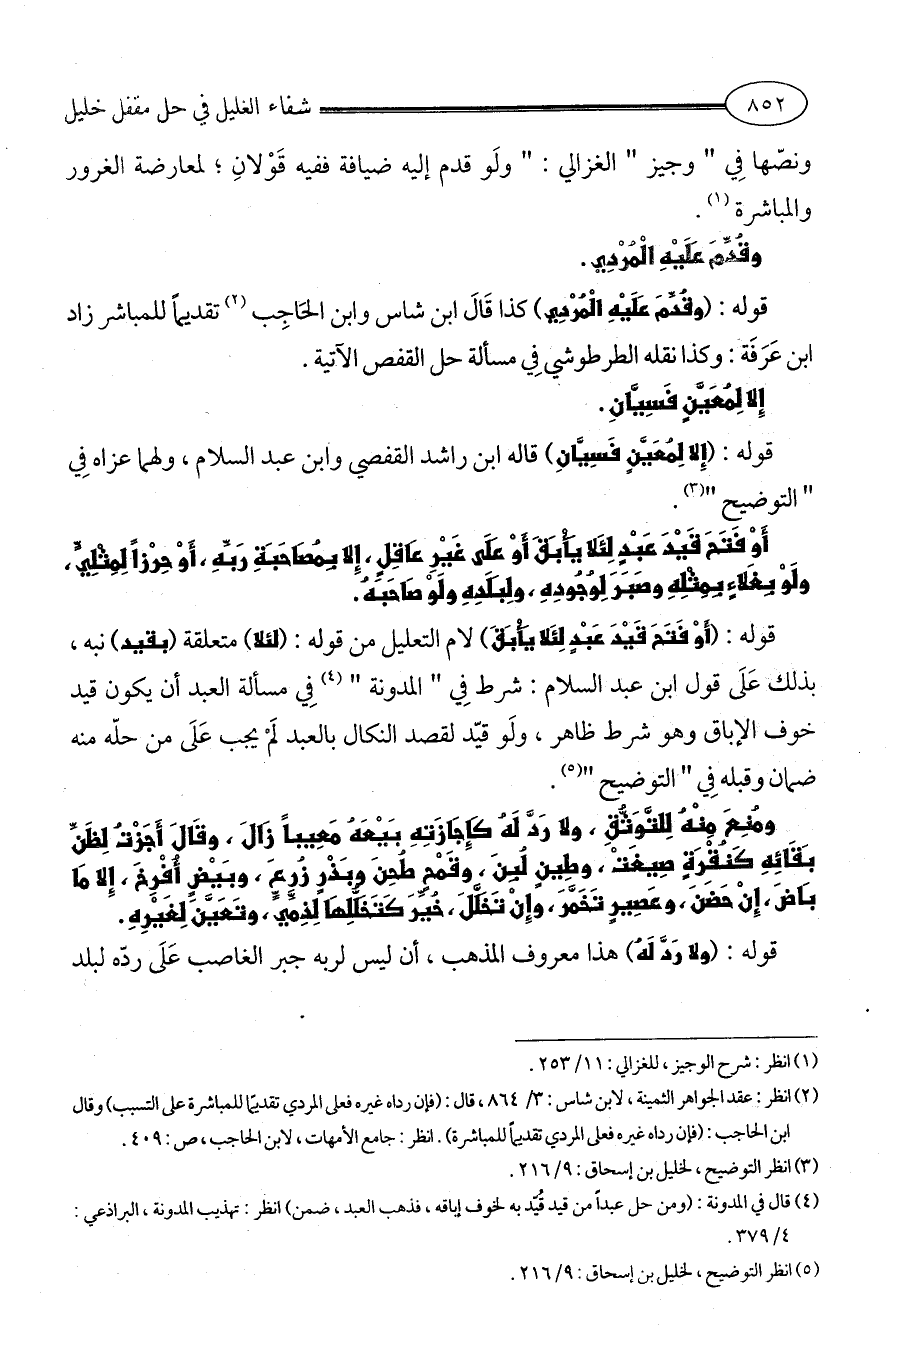 ٨٥٢ شفاء الغليل في حل مقفل خليل
ونصّها فِي " وجيز " الغزالي : " ولَو قدم إليه ضيافة ففيه قَوْلانِ ؛ لمعارضة الغرور
والمباشرة (١) .
وقُدِّمَ عَلَيْهِ الْمُرْدِي .
قوله : (وقُدِّمَ عَلَيْهِ الْمُرْدِي) كذا قَالَ ابن شاس وابن الحَاجِب (٢) تقديماً للمباشر زاد
ابن عَرَفَة : وكذا نقله الطرطوشي فِي مسألة حل القفص الآتية .
إِلا لِمُعَيَّنٍ فَسِيَّانِ .
قوله : (إِلا لِمُعَيَّنٍ فَسِيَّانِ) قاله ابن راشد القفصي وابن عبد السلام ، ولهما عزاه فِي
" التوضيح "(٣) .
أَوْ فَتَحَ قَيْدَ عَبْدٍ لِئَلا يَأْبَقَ أَوْ عَلَى غَيْرِ عَاقِلٍ ، إِلا بِمُصَاحَبَةِ رَبِّهِ ، أَوْ حِرْزاً لِمِثْلِيٍّ ،
ولَوْ بِغَلاءٍ بِمِثْلِهِ وصَبَرَ لِوُجُودِهِ ، ولِبَلَدِهِ ولَوْ صَاحَبَهُ .
قوله : (أَوْ فَتَحَ قَيْدَ عَبْدٍ لِئَلا يَأْبَقَ) لام التعليل من قوله : (لئلا) متعلقة (بقيد) نبه ،
بذلك عَلَى قول ابن عبد السلام : شرط فِي " المدونة " (٤) فِي مسألة العبد أن يكون قيد
خوف الإباق وهو شرط ظاهر ، ولَو قيّد لقصد النكال بالعبد لَمْ يجب عَلَى من حلّه منه
ضمان وقبله فِي " التوضيح "(٥) .
ومُنِعَ مِنْهُ لِلتَّوَثُّقِ ، ولا رَدَّ لَهُ كَإِجَازَتِهِ بَيْعَهُ مَعِيباً زَالَ ، وقَالَ أَجَزْتُ لِظَنِّ
بَقَائِهِ كَنُقْرَةٍ صِيغَتْ ، وطِينٍ لُبِنَ ، وقَمْحٍ طُحِنَ وبَذْرٍ زُرِعَ ، وبَيْضٍ أُفْرِخَ ، إِلا مَا
بَاضَ ، إِنْ حَضَنَ ، وعَصِيرٍ تَخَمَّرَ ، وإِنْ تَخَلَّلَ ، خُيِّرَ كَتَخَلُّلِهَا لِذِمِّيٍّ ، وتَعَيَّنَ لِغَيْرِهِ .
قوله : (ولا رَدَّ لَهُ) هذا معروف المذهب ، أن ليس لربه جبر الغاصب عَلَى ردّه لبلد
(١) انظر : شرح الوجيز ، للغزالي : ١١/ ٢٥٣ .
(٢) انظر : عقد الجواهر الثمينة ، لابن شاس : ٣/ ٨٦٤ ، قال : (فإن رداه غيره فعلى المردي تقديمًا للمباشرة على التسبب) وقال
ابن الحاجب : (فإن رداه غيره فعلى المردي تقديماً للمباشرة) . انظر : جامع الأمهات ، لابن الحاجب ، ص : ٤٠٩ .
(٣) انظر التوضيح ، لخليل بن إسحاق : ٩/ ٢١٦ .
(٤) قال في المدونة : (ومن حل عبداً من قيد قُيّد به لخوف إباقه ، فذهب العبد ، ضمن) انظر : تهذيب المدونة ، البراذعي :
٤/ ٣٧٩ .
(٥) انظر التوضيح ، لخليل بن إسحاق : ٩/ ٢١٦ .